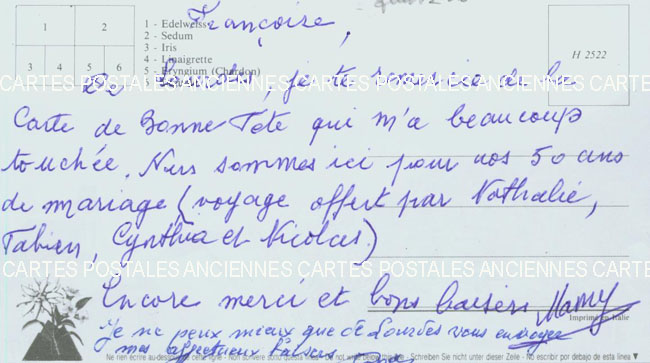 Françoise,
1 - Edelweiss
2 - Sedum
3 - Iris
4 - Linaigrette
5 - Eryngium (Chardon)
1 2
3 4 5 6
H 2522
je te remercie de la
CARTES POSTALES ANCIENNES CARTES POSTALES ANCIENNES CARTES
Carte de Bonne Fete qui m'a beaucoup
touchée. Nous sommes ici pour nos 50 ans
de mariage (voyage offert par Nathalie,
Fabien, Cynthia et Nicolas.)
CARTES POSTALES ANCIENNES CARTES POSTALES ANCIENNES CARTES
Encore merci et bons baisers Mamy
Imprimé en Italie
Je ne peux mieux que de Lourdes vous envoyer
mes affectueux baisers
Ne rien écrire au-dessous de cette ligne - Schreiben Sie nicht unter dieser Zeile - No escribir por debajo de esta linea